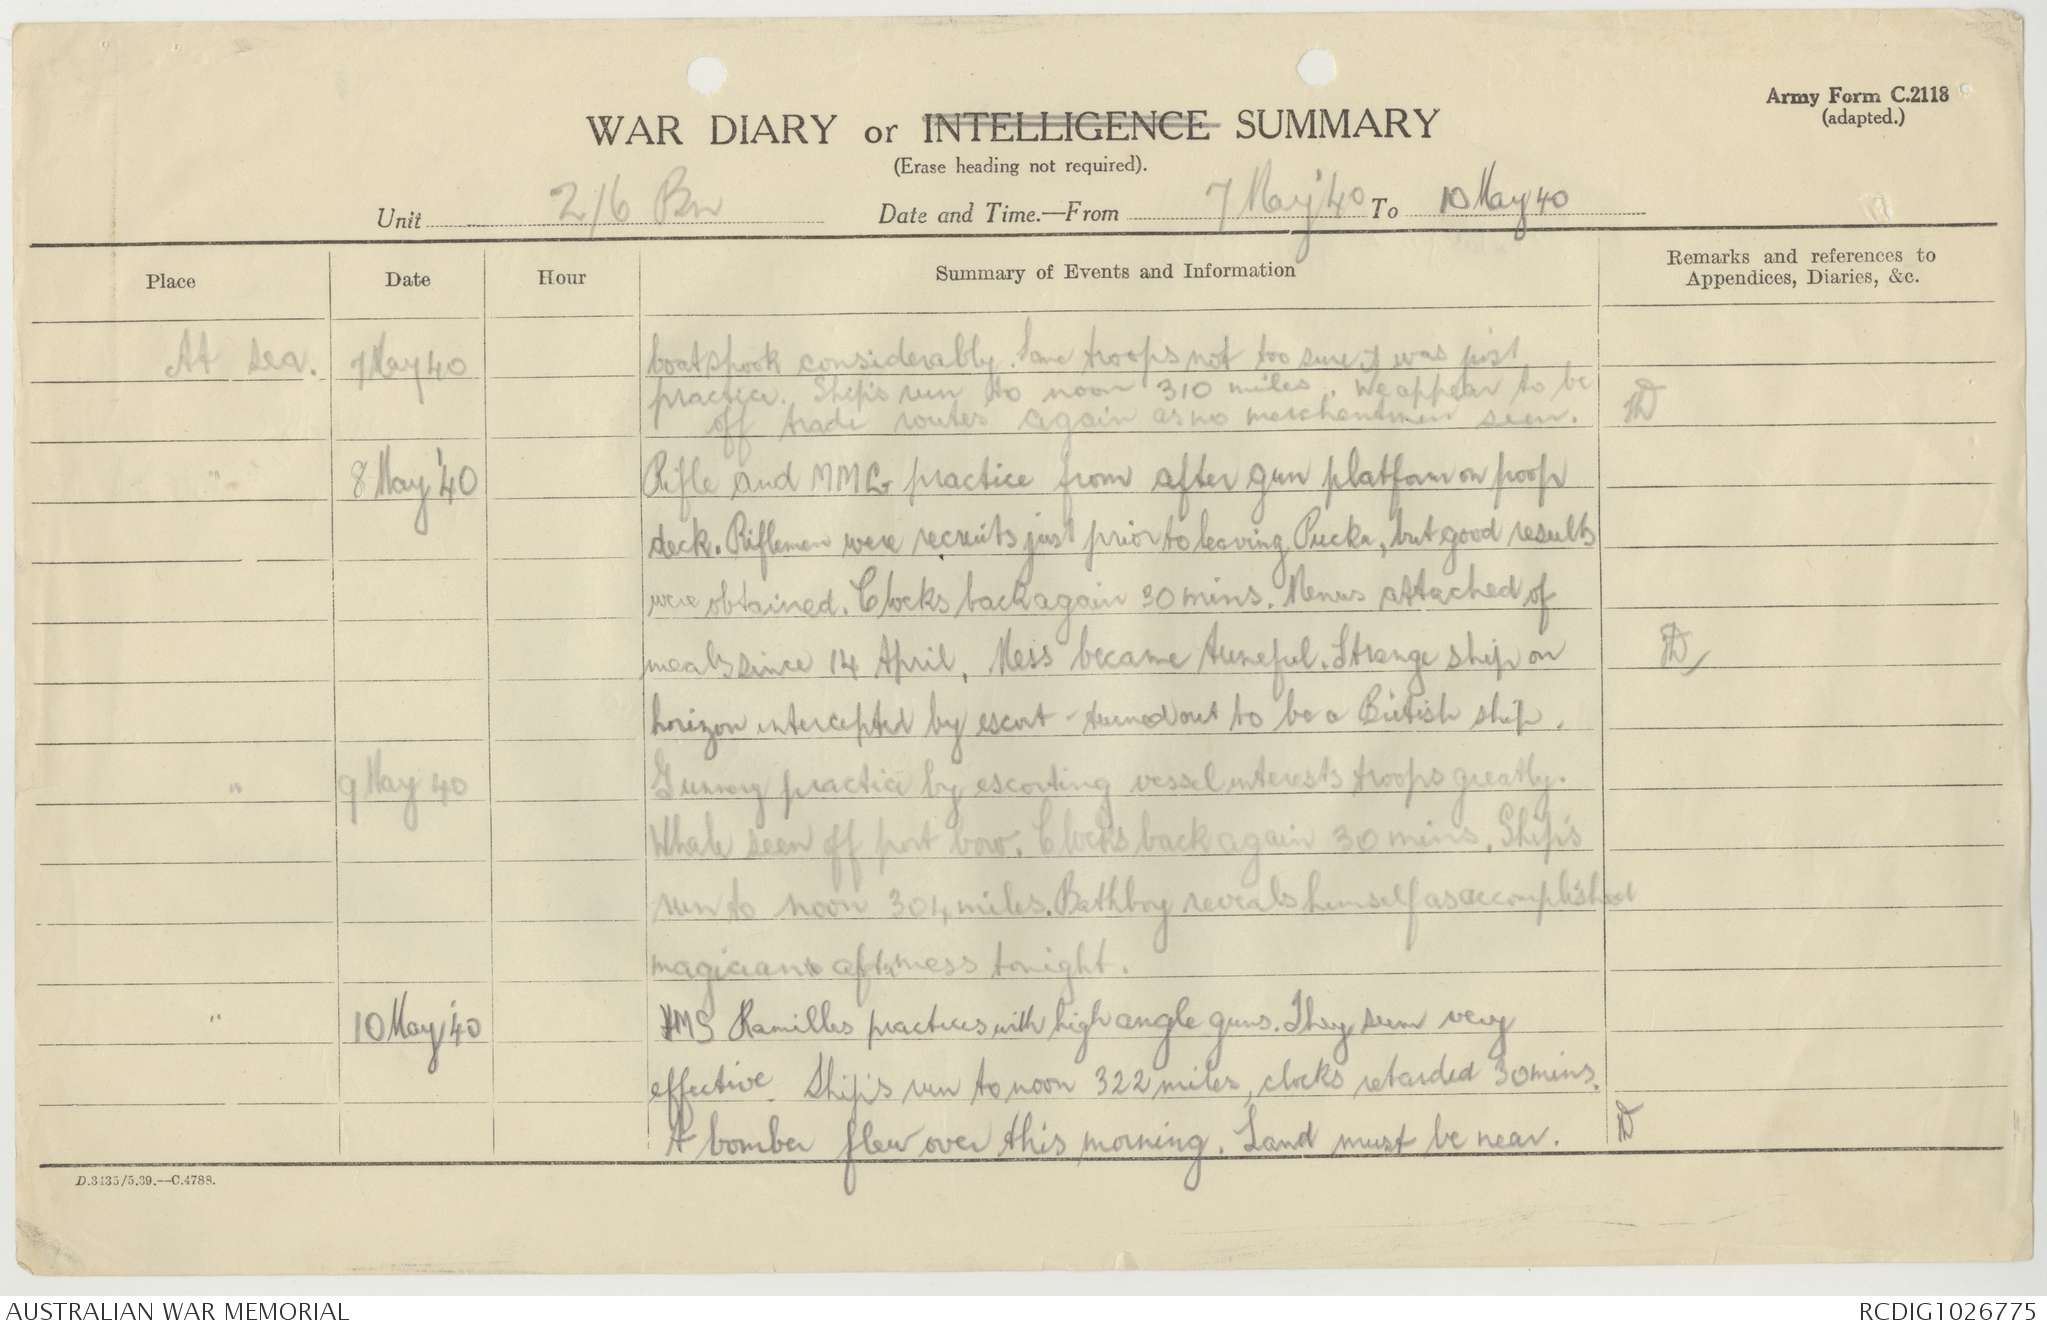 Army Form C.2118
(adapted.)
WAR DIARY or INTELLIGENCE SUMMARY
(Erase heading not required).
Unit 2/6 Bn Date and Time.—From 7 May '40 To 10 May 40
Place Date Hour Summary of Events and Information Remarks and references to
Appendices, Diaries, &c.
At sea. 7 May 40 boat shook considerably. Some troops not too sure it was just
practice. Ship's run to noon 310 miles. We appear to be
off trade routes again as no merchantmen seen.
" 8 May '40 Rifle and MMG practice from after gun platform on poop
deck. Riflemen were recruits just prior to leaving Pucka, but good results
were obtained. Clocks back again 30 mins. Menus attached of
meals since 14 April. Mess became tuneful. Strange ship on
horizon intercepted by escort - turned out to be a British ship.
" 9 May 40 Gunnery practice by escorting vessel interests troops greatly.
Whale seen off port bow. Clocks back again 30 mins. Ship's
run to noon 304 miles. Bathboy reveals himself as accomplished
magician after mess tonight.
" 10 May '40 HMS Ramilles practices with high angle guns. They seem very
effective. Ship's run to noon 322 miles, clocks retarded 30 mins.
A bomber flew over this morning. Land must be near.
D.3435/5.39.—C.4788.
AUSTRALIAN WAR MEMORIAL RCDIG1026775